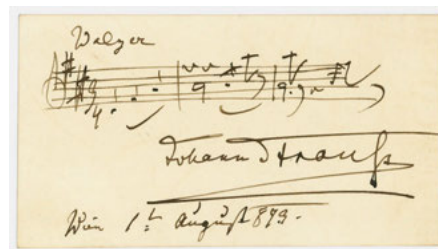 Walzer
Johann Strauß
Wien 1t August 893.